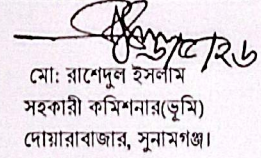 মো: রাশেদুল ইসলাম
সহকারী কমিশনার(ভূমি)
দোয়ারাবাজার, সুনামগঞ্জ।